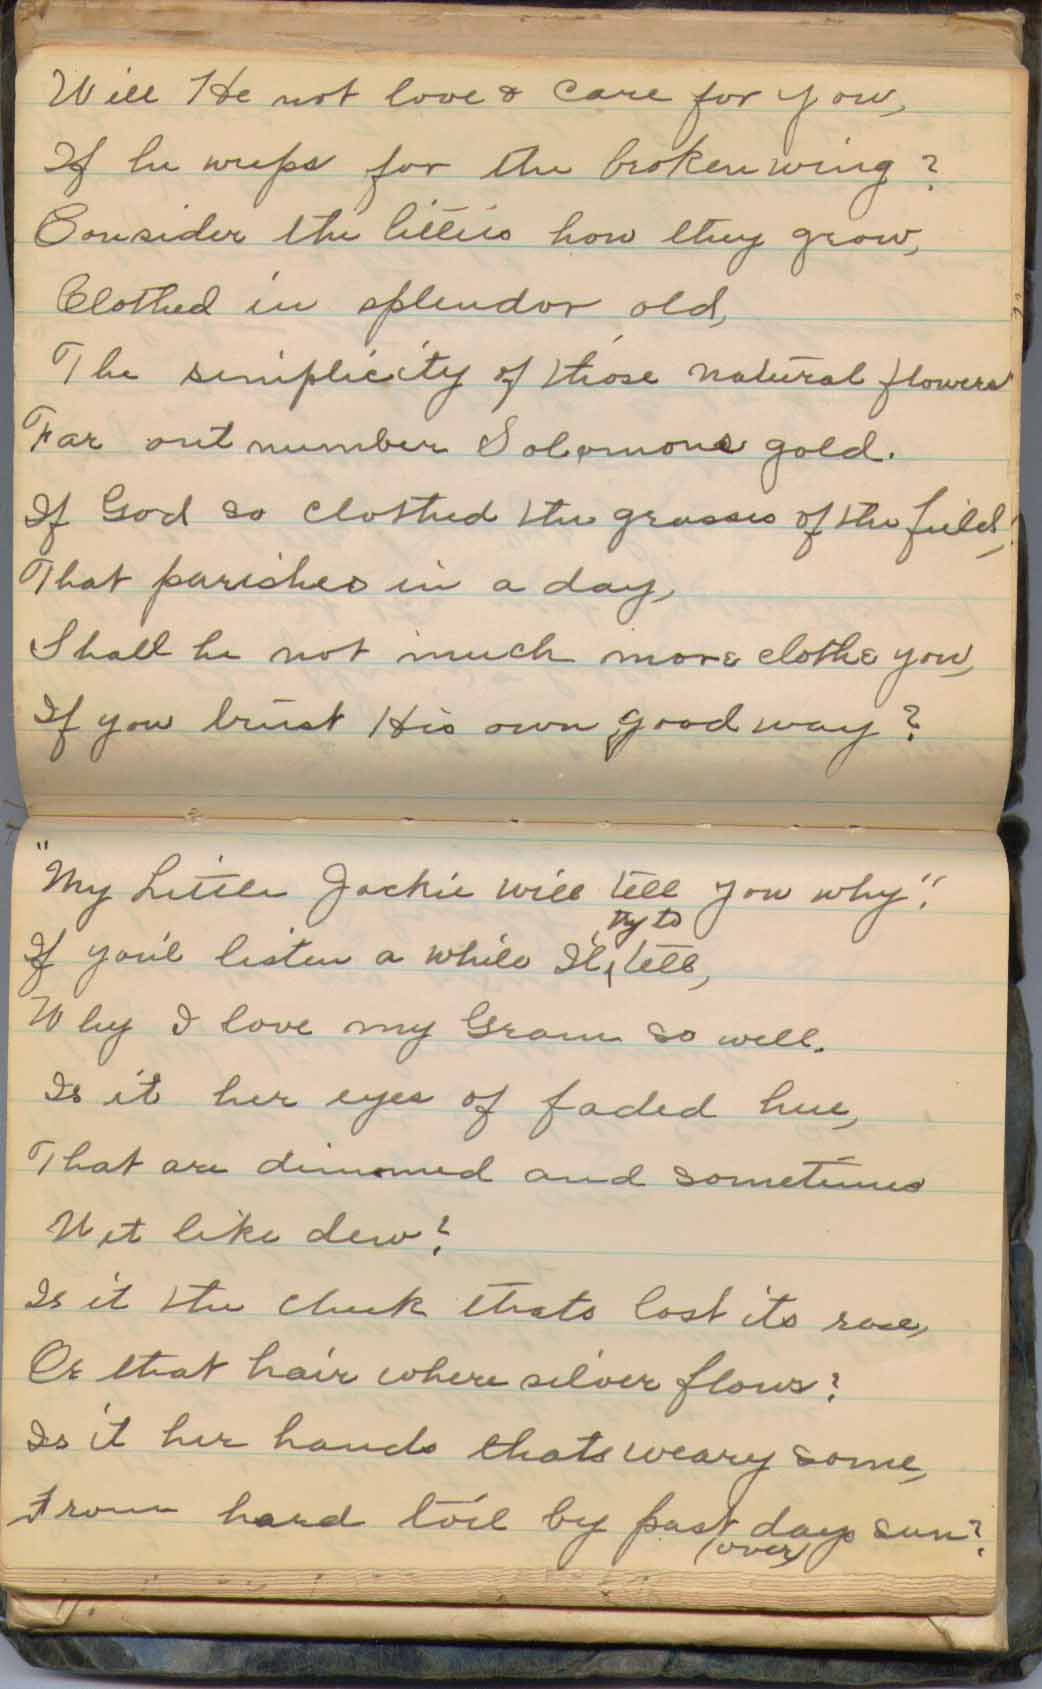 Will He not love & care for you,
If he weeps for the broken wing?
Consider the lillies how they grow,
Clothed in splendor old,
The simplicity of those natural flowers
Far out number Solomons gold.
If God so clothed the grasses of the field,
That parishes in a day,
Shall he not much more clothe you,
If you trust His own good way?
"My Little Jackie will tell you why".
try to
If you'l listen a while I'l tell,
Why I love my Gram so well.
Is it her eyes of faded hue,
That are dimmed and sometimes
Wet like dew?
Is it the cheek thats lost its rose,
Or that hair where silver flows?
Is it her hands thats weary some,
From hard toil by past days sun?
(over)